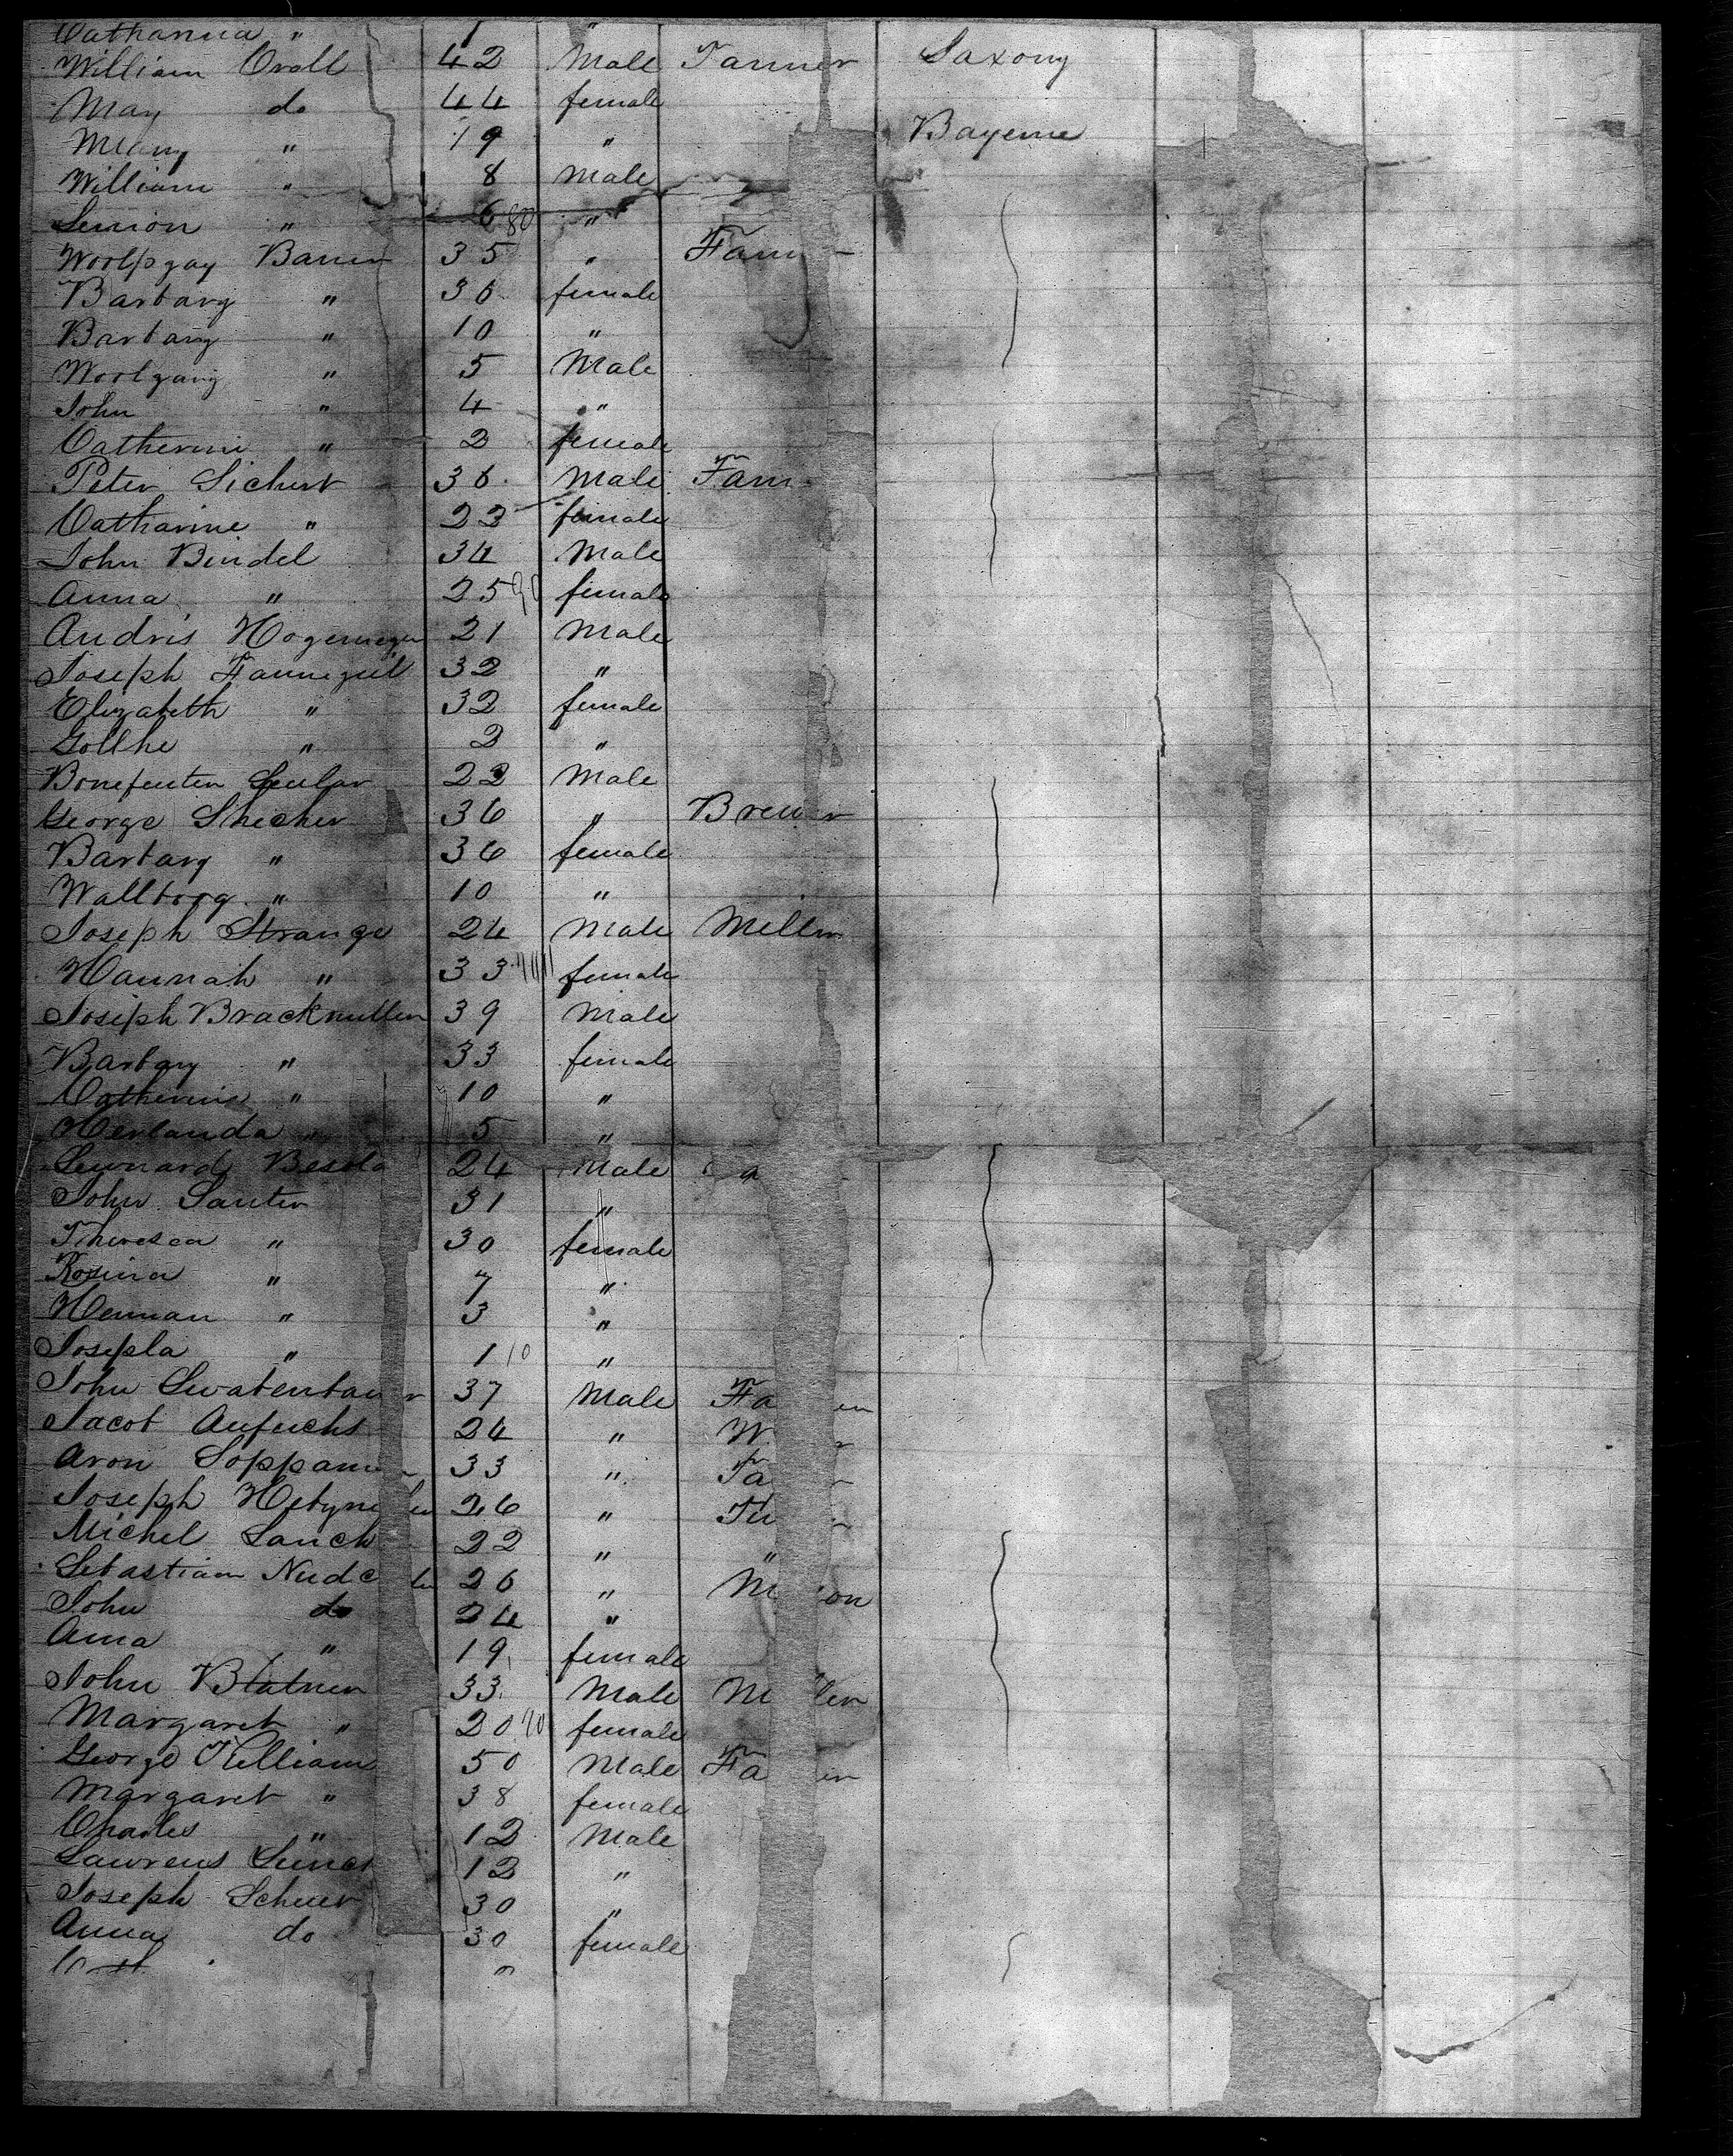 Catharina " 1 "
William Oroll 42 Male Tanner Saxony
May do 44 female
Mary " 19 " Bayerne
William " 8 Male
Semion " 6 80 "
Woolpgay Bauer 35 " Farm
Barbary " 36 female
Barbary " 10 "
Woolgang " 5 Male
John " 4 "
Catherine " 2 female
Peter Sichert 36 Male Farm
Catharine " 22 female
John Bindel 34 Male
Anna " 25 90 female
Andris 21 Male
Joseph 32 "
Elizabeth " 32 female
Gollhe " 2 "
Bonefenten 22 Male
George Shecher 36 " Brewer
Barbary " 36 female
Wallborg " 10 "
Joseph Strange 24 Male Miller
Hannah " 33 female
Joseph Brackmuller 39 Male
Barbary " 33 female
Catherine " 10 "
Herlanda " 5 "
Leonard Besola 24 Male
John Santer 31 "
Theresea " 30 female
Rosina " 7 "
Herman " 3 "
Josepla " 1 10 "
John 37 Male Fa er
Jacob Aufuchs 24 " W r
Aron 33 " Ta
Joseph 26 "
Michel Lanch 22 " "
Sebastian 26 " M on
John do 24 "
Anna " 19 female
John Blatner 33 Male M ler
Margaret " 20 20 female
George Killiam 50 Male Fa er
Margaret " 38 female
Charles " 12 Male
Lawrens 12 "
Joseph Scheer 30 "
Anna do 30 female